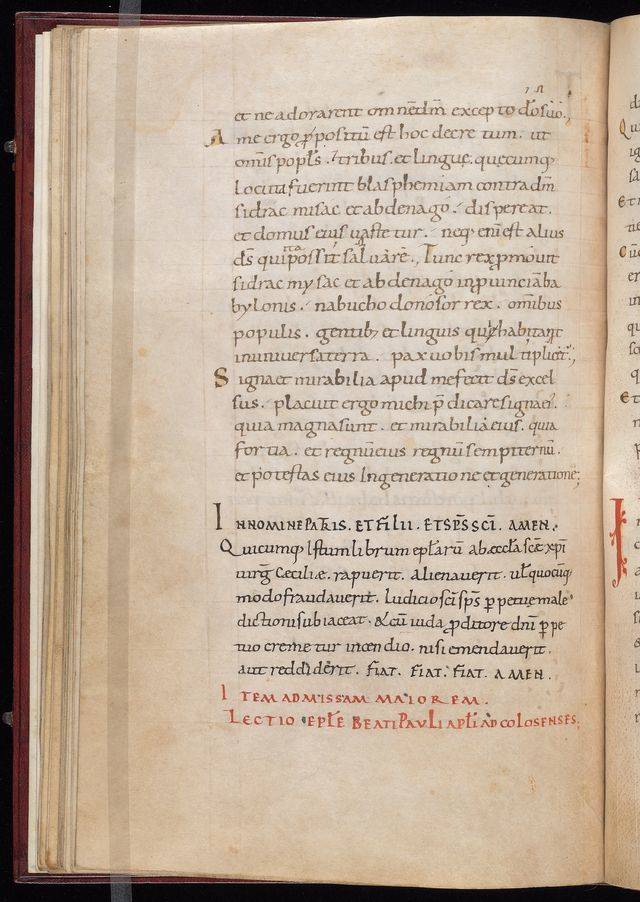 et ne adorarent omnē dm̄ excepto dō suo.
A me ergo ꝓpositū est hoc decretum. ut
om̄is popl̄s. tribus. et lingue. quecumq;
locuta fuerint blasphemiam contra dm̄
sidrac misac et abdenago. dispereat.
et domus eius uastetur. neq; eni est alius
ds̄ qui possit ita saluare. Tunc rex ꝓmouit
sidrac mysac et abdenago in ꝓuincia ba
bylonis. nabuchodonosor rex. omībus
populis. gentib; et linguis qui habitant
in uniuersa terra. pax uobis multiplicet̄.
Signa et mirabilia apud me fecit ds̄ excel
sus. placuit ergo michi p̄dicare signa ei
quia magna sunt. et mirabilia eius. quia
fortia. et regnū eius regnū sempiternū.
et potestas eius in generatione et generatione;
IN NOMINE PATRIS. ET FILII. ET SPS̄ SCI. AMEN.
Quicumq; istum librum epl̄arū ab æccl̄a scæ xp̄i
uirg̅ Ceciliæ. rapuerit. alienauerit. ul̄ quocūq;
modo fraudauerit. Iudicio sci sps̄ perpetue male
dictioni subiaceat. & cū iuda ꝓditore dn̄i perpe
tuo cremetur incendio. nisi emendauerit.
aut reddiderit. FIAT. FIAT. FIAT. AMEN.
ITEM AD MISSAM MAIOREM.
LECTIO EPL̄E BEATI PAVLI APL̄I AD COLOSENSES.